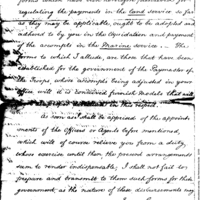 regulating the payments in the land service so far
as they may be applicable, ought to be adopted and
adhered to by you in the liquidation and payment
of the accounts in the Marine service. The
forms to which I allude, are those that have been
established for the government of the Paymaster of
the Troops, whose accounts being adjusted in your
office will it is conceived furnish models that will
in this regard.
As soon as I shall be apprised of the appoint-
ments of the officers or Agents before mentioned,
which will of course relieve you from a duty,
whose exercise until then the present arrangements
seem to render indispensable, I shall not fail to
prepare and transmit to them such forms for their
government, as the nature of their disbursements may